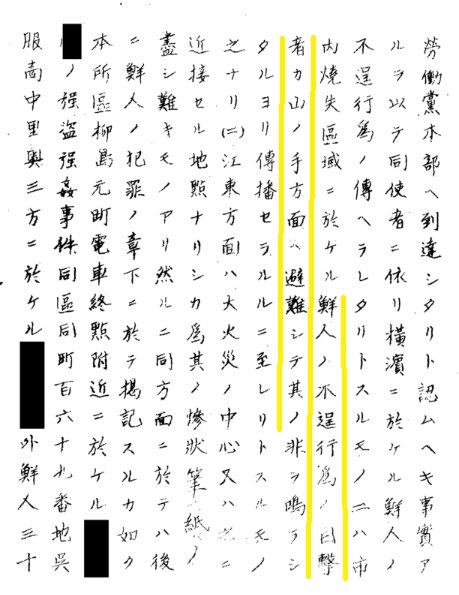 勞働黨本部ヘ到達シタリト認ムヘキ事實ア
ルヲ以テ同使者ニ依リ橫濱ニ於ケル鮮人ノ
不逞行爲ノ傳ヘラレタリトスルモノ一ハ市
內燒失區域ニ於ケル鮮人ノ不逞行爲ノ目擊
者カ山ノ手方面ヘ避難シテ其ノ非ヲ鳴ラシ
タルヨリ傳播セラルルニ至レリトスルモノ
之ナリ(二)江東方面ハ大火災ノ中心又ハ之ニ
近接セル地點ナリシカ爲其ノ慘狀筆紙ノ
盡シ難キモノアリ然ルニ同方面ニ於テハ後
ニ鮮人ノ犯罪ノ章下ニ於テ揭記スルカ如ク
本所區柳島元町電車終點附近ニ於ケル
ノ强盜强姦事件同區同町百六十九番地吳
服商中里與三方ニ於ケル 外鮮人三十